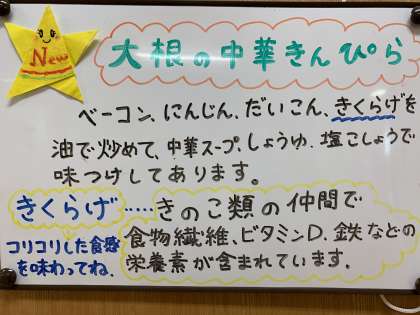 New
大根の中華きんぴら
ベーコン、にんじん、だいこん、きくらげを
油で炒めて、中華スープ、しょうゆ、塩こしょうで
味つけしてあります。
きくらげ……きのこ類の仲間で
食物繊維、ビタミンD、鉄などの
栄養素が含まれています。
コリコリした食感
を味わってね。